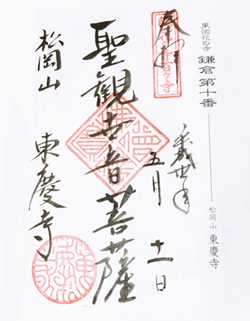 東国花の寺 鎌倉第十番
松岡山 東慶寺
奉拝
平成廿年
五月十一日
聖観世音菩薩
松岡山
東慶寺